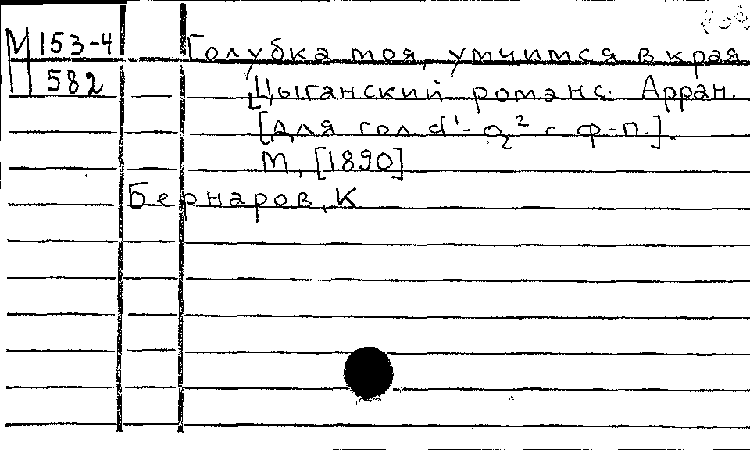 М 153-4
582
Голубка моя, умчимся в края
Цыганский романс. Арран.
[Для гол. d¹-g² с ф-п.].
М, [1890]
Бернаров, К